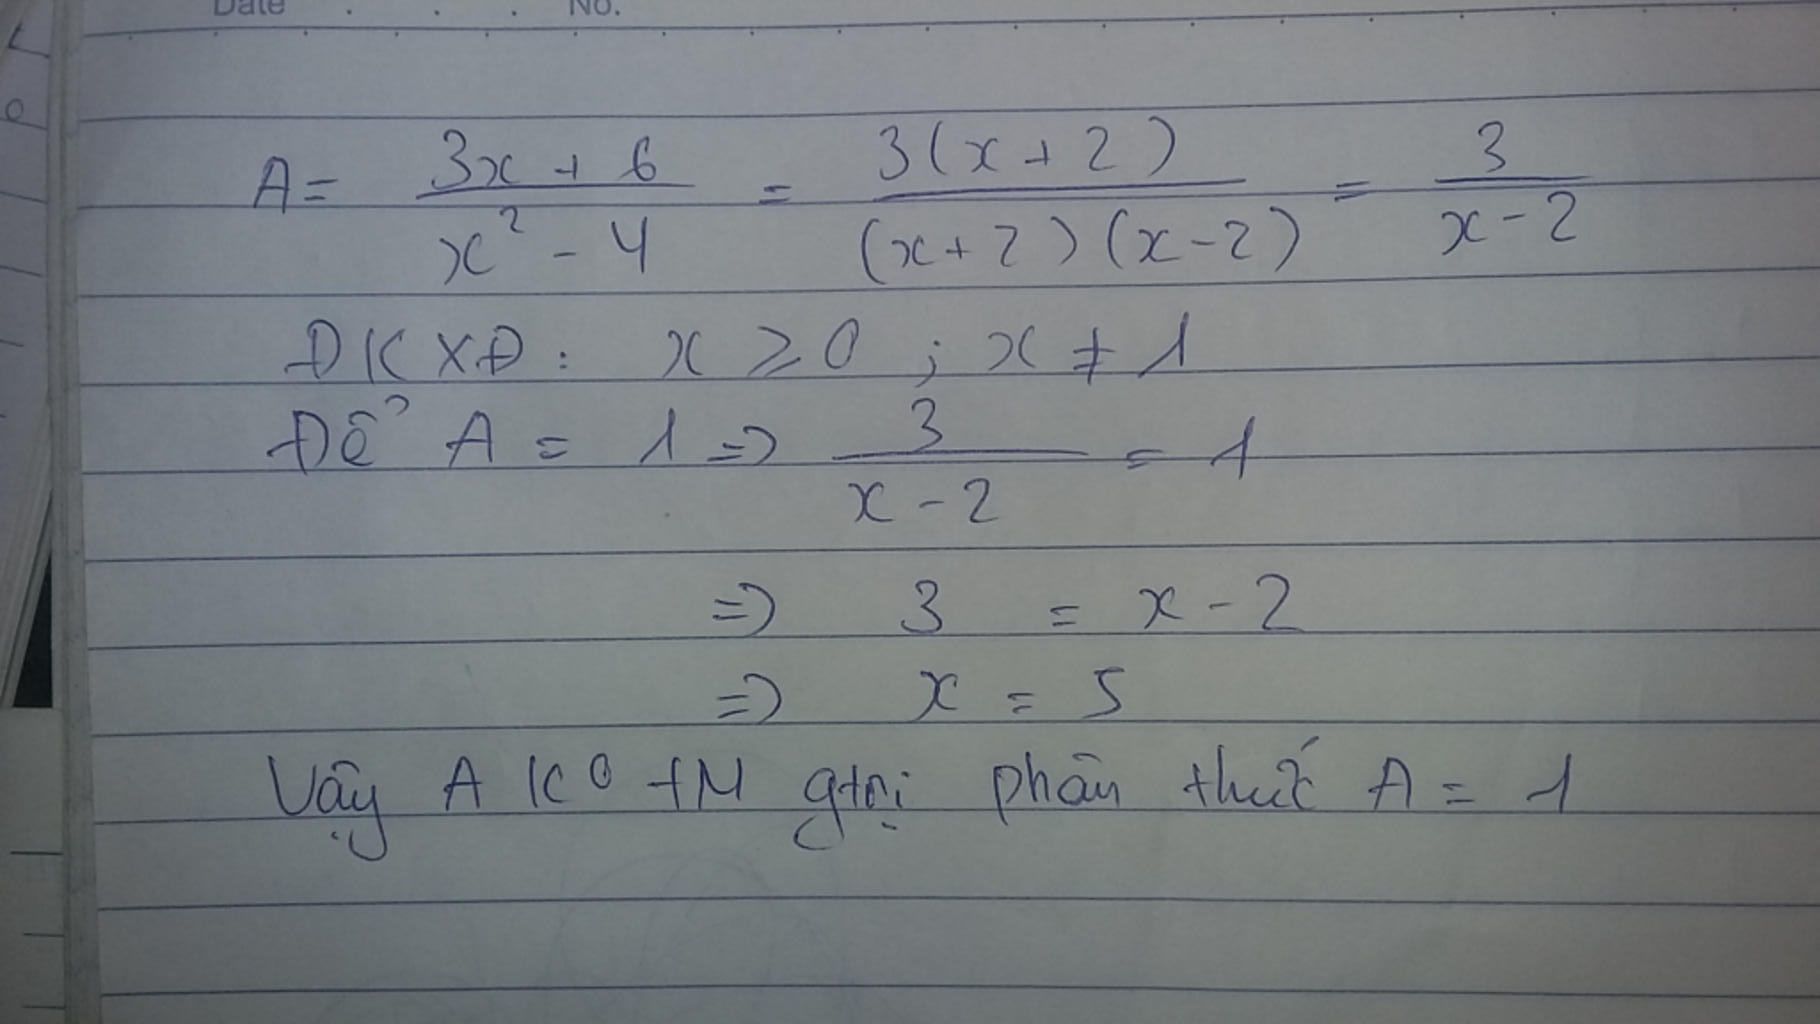 Date . . . No.
A = \frac{3x + 6}{x^2 - 4} = \frac{3(x + 2)}{(x + 2)(x - 2)} = \frac{3}{x - 2}
ĐKXĐ: x ≥ 0 ; x ≠ 1
Để A = 1 => \frac{3}{x - 2} = 1
=> 3 = x - 2
=> x = 5
Vậy A K° TM gtrị phân thức A = 1